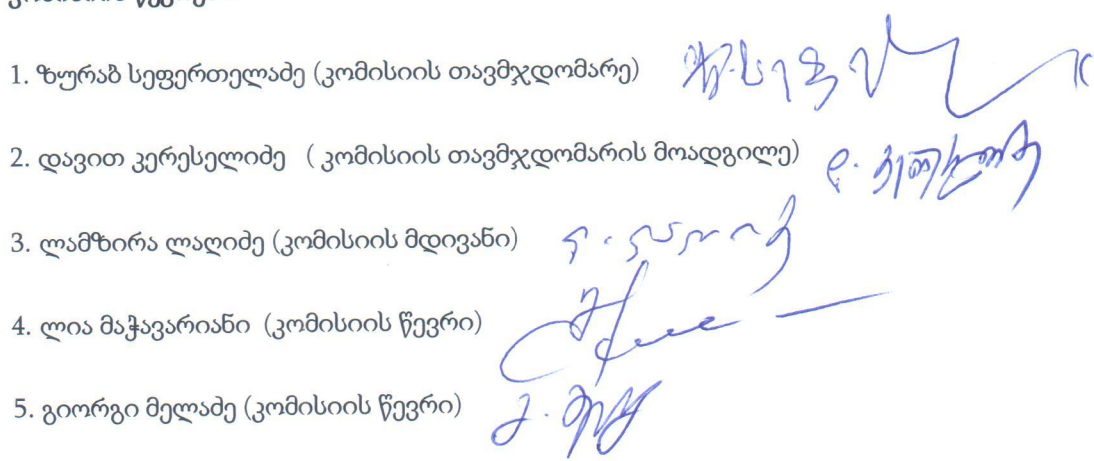 1. ზურაბ სეფერთელაძე (კომისიის თავმჯდომარე)
2. დავით კერესელიძე ( კომისიის თავმჯდომარის მოადგილე)
3. ლამზირა ლაღიძე (კომისიის მდივანი)
4. ლია მაჭავარიანი (კომისიის წევრი)
5. გიორგი მელაძე (კომისიის წევრი)